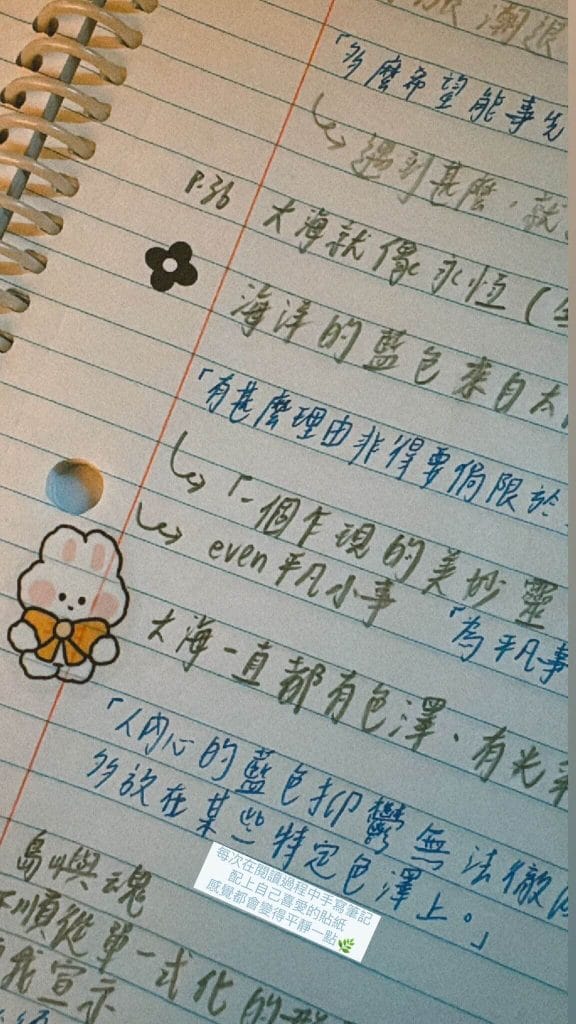 潮退
「多麼希望能事先
↳ 遇到甚麼，就
P.36 大海就像永恆（
海洋的藍色來自太
「有甚麼理由非得要侷限於
↳「一個乍現的美妙靈
↳ even 平凡小事 「為平凡事
大海一直都有色澤、有光
「人內心的藍色抑鬱無法徹
多放在某些特定色澤上。」
島嶼魂
順從單一式化的
我宣示
每次在閱讀過程中手寫筆記
配上自己喜愛的貼紙
感覺都會變得平靜一點🌿